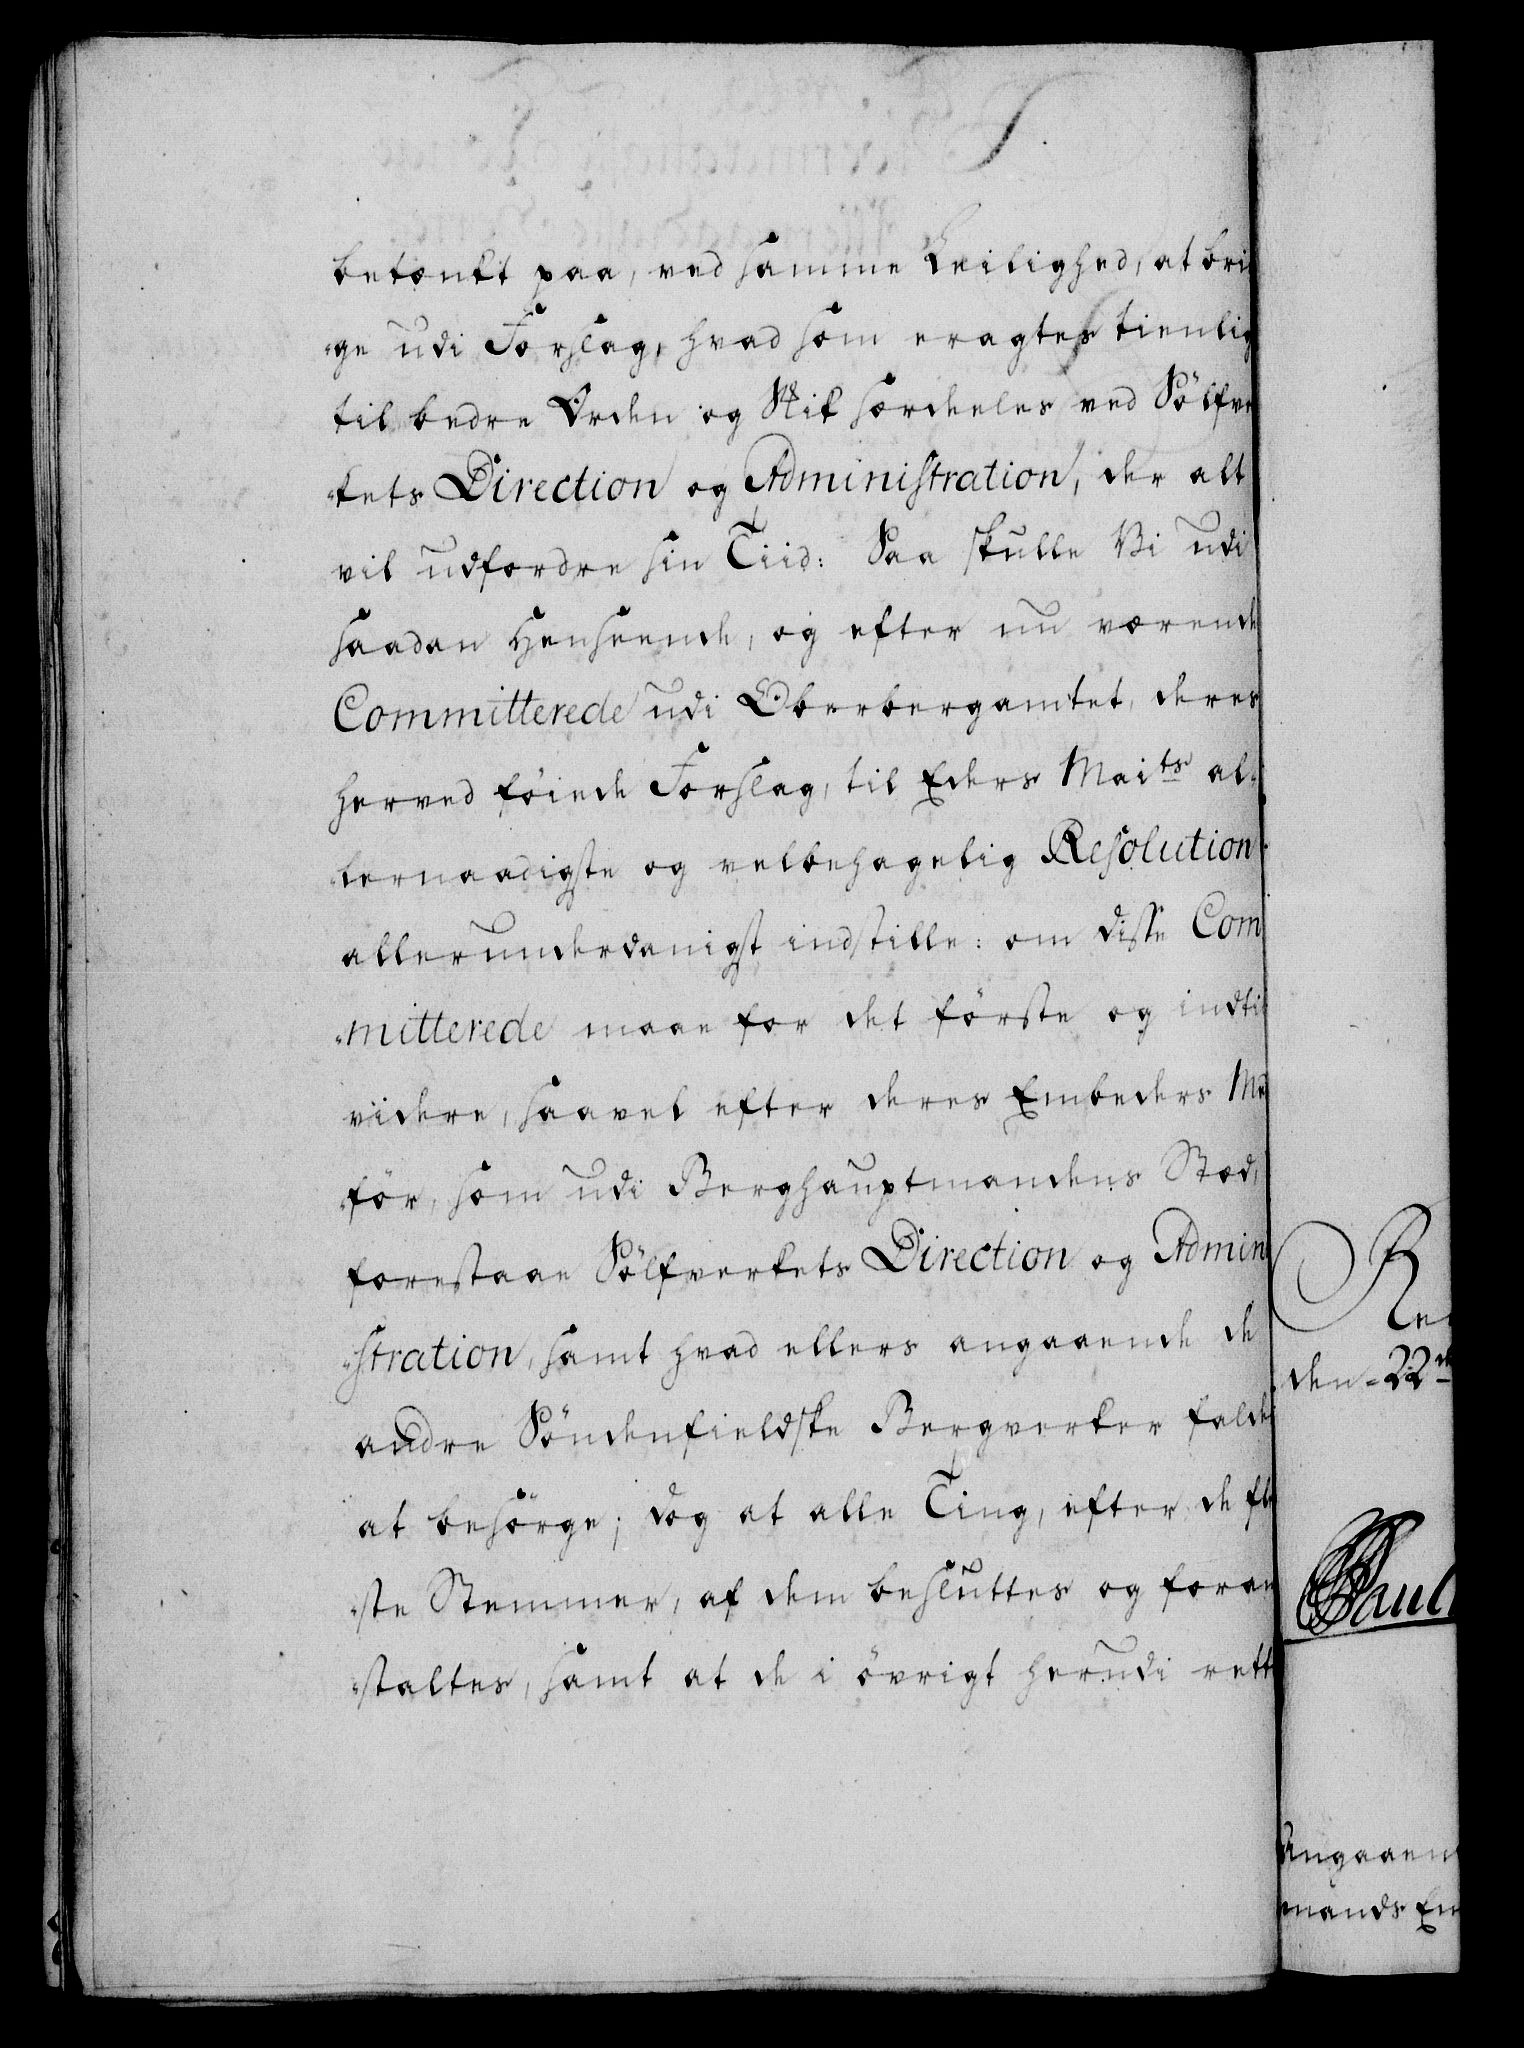 betænkt paa, ved samme Leilighed, at bri
-ge udi Forslag, hvad som eragtes tienlig
til bedre Orden og Skik særdeeles ved Sölfver
-kets Direction og Administration, der alt
vil udfordre sin Tiid: Saa skulle Vi udi
saadan Henseende, og efter nu værende
Committerede udi Oberbergamtet, deres
herved föiede Forslag, til Eders Maits al-
-lernaadigste og velbehagelig Resolution
allerunderdanigst indstille: om disse Com
-mitterede maae for det förste og indtil
viidere, saavel efter deres Embeders Med
-för, som udi Berghauptmandens Stæd,
forestaae Sölfverkets Direction og Admini
-stration, samt hvad ellers angaaende de
andre Söndenfieldske Bergverker falder
at besörge; dog at alle Ting, efter de fle
-ste Stemmer, af dem besluttes og foran
-staltes, samt at de i övrigt herudi rette
R
den 22de
Paul
Angaaen
mands Em